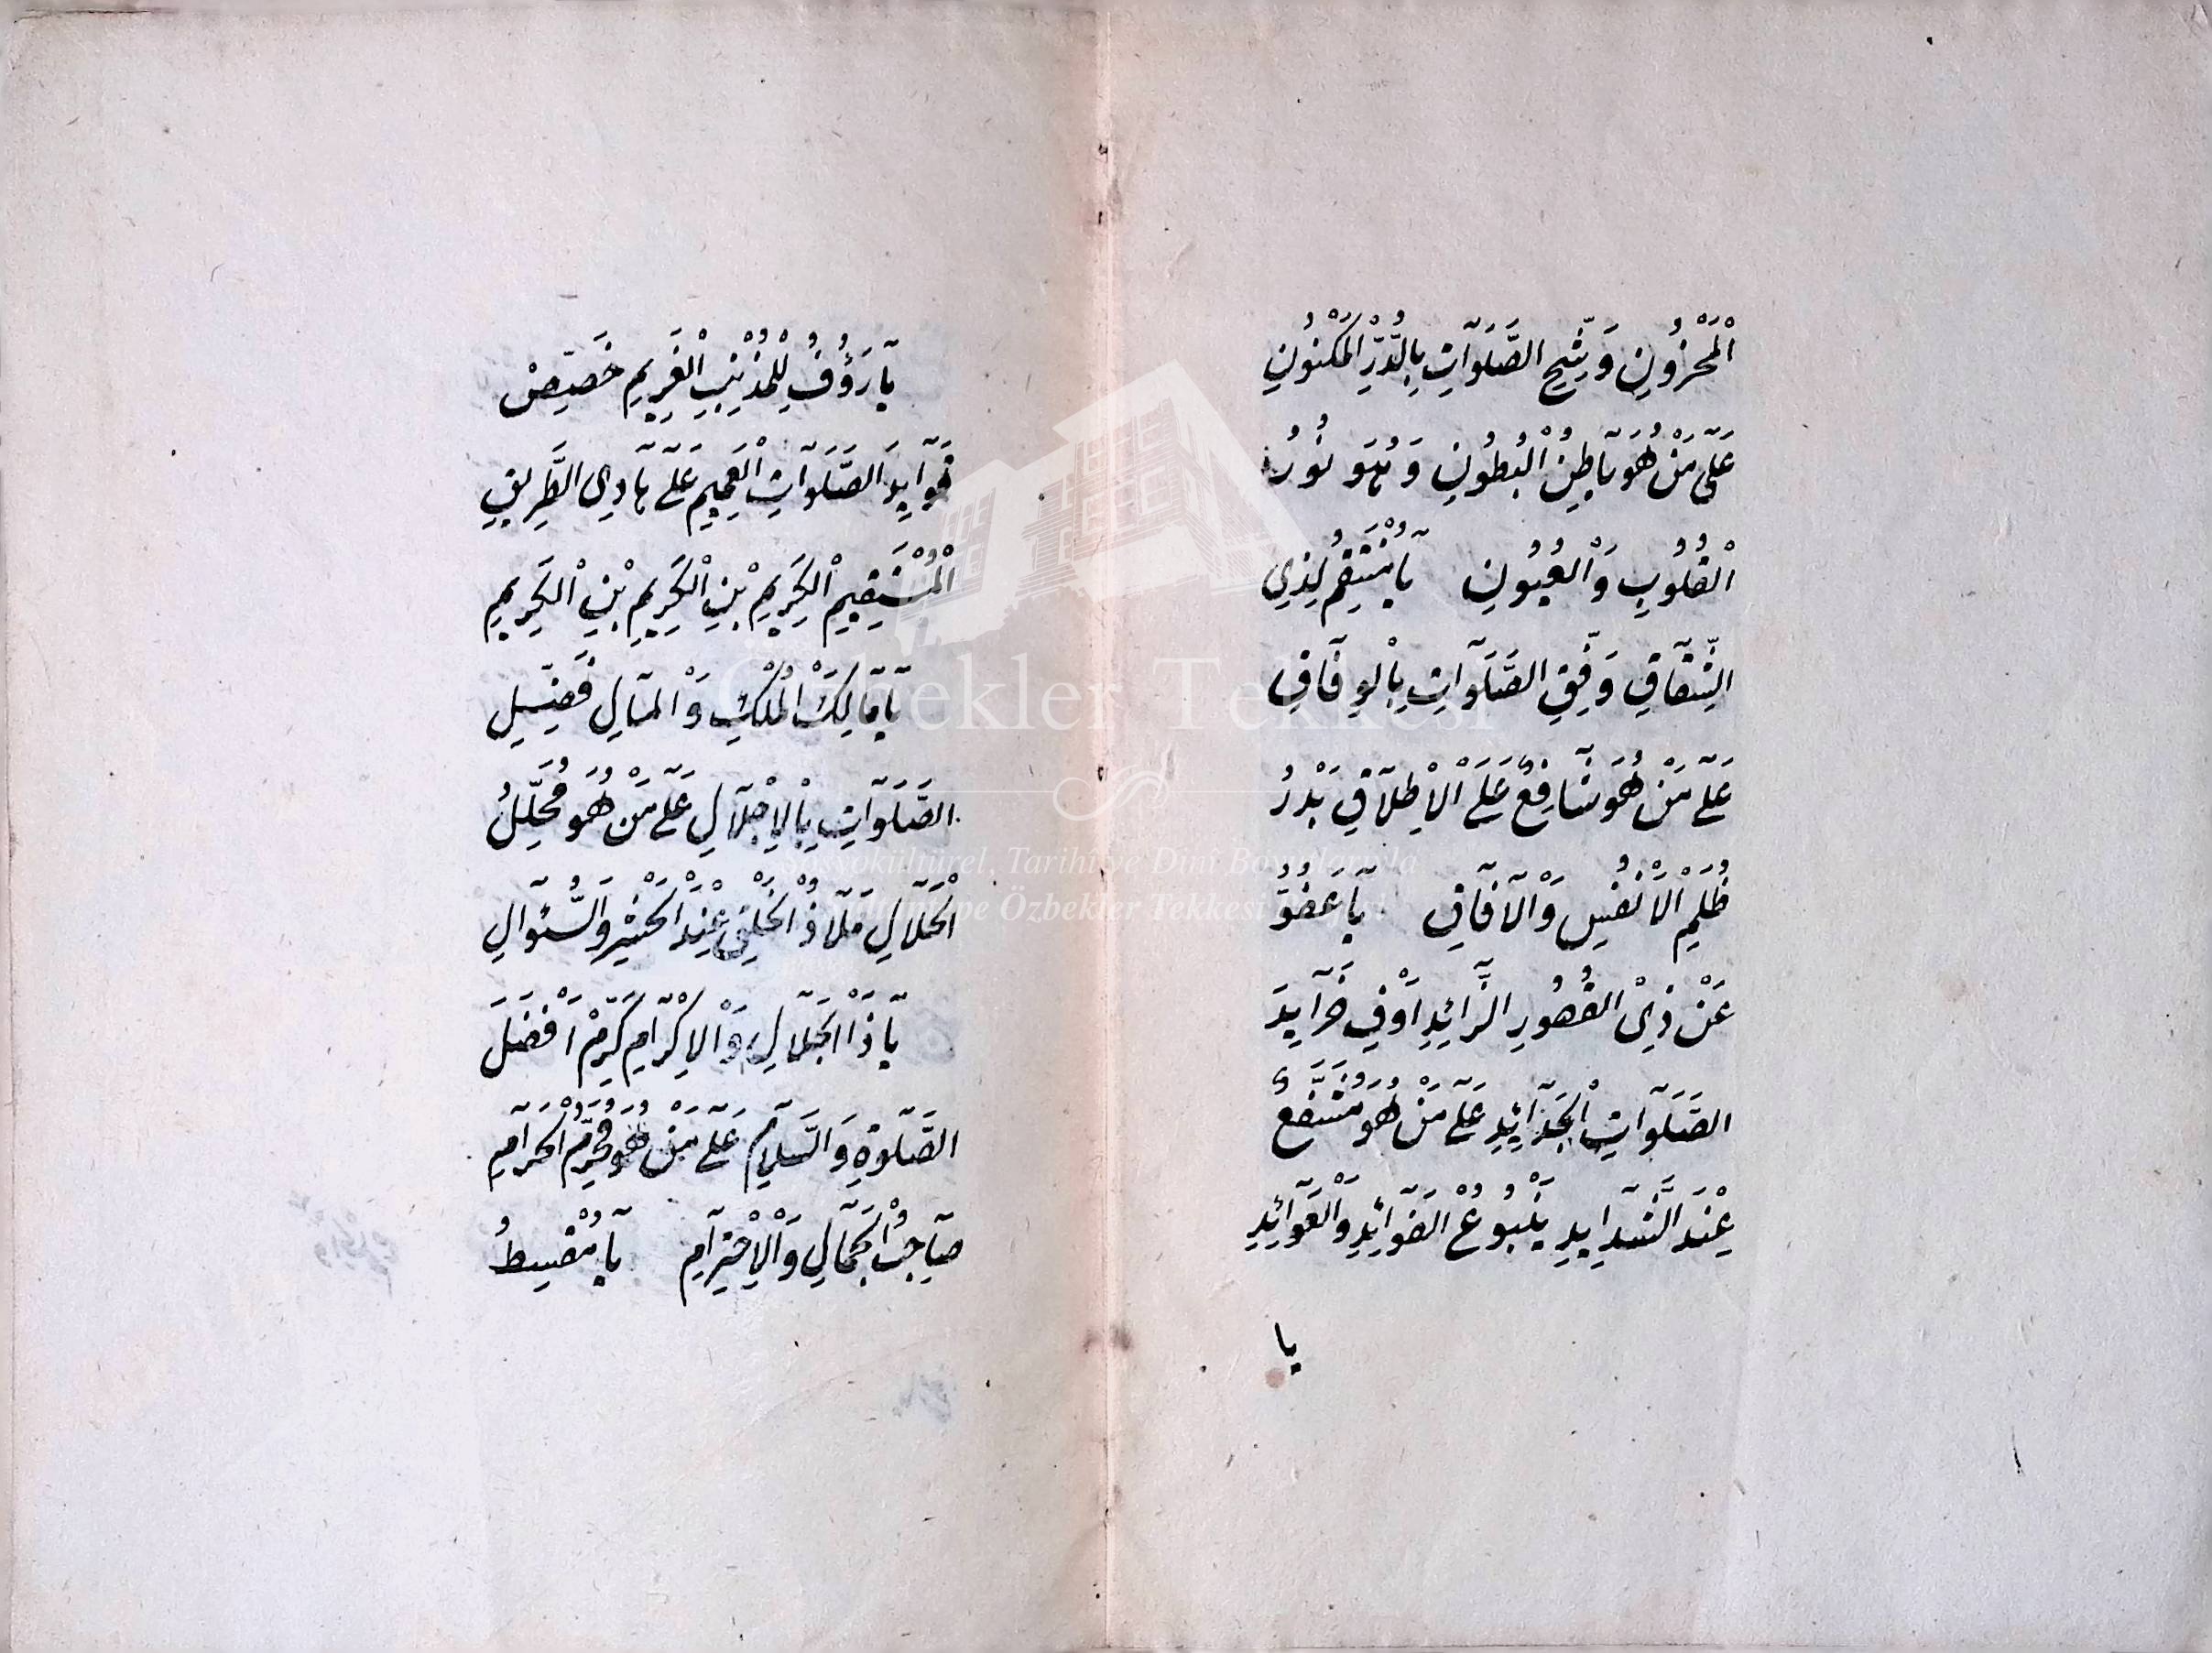 الْمَحْزُونِ وَشِّحِ الصَّلَوَاتِ بِالدُّرِّ الْمَكْنُونِ
عَلَى مَنْ هُوَ بَاطِنُ الْبُطُونِ وَهُوَ نُورُ
الْقُلُوبِ وَالْعُيُونِ يَا مُنْتَقِمُ لِذِي
الشِّقَاقِ وَفِّقِ الصَّلَوَاتِ بِالْوِفَاقِ
عَلَى مَنْ هُوَ شَافِعٌ عَلَى الْاِطْلَاقِ بَدْرُ
ظُلَمِ الْاَنْفُسِ وَالْآفَاقِ يَا عَفُوُّ
عَنْ ذِي الْقُصُورِ الزَّائِدِ اَوْفِ
الصَّلَوَاتِ عَلَى مَنْ هُوَ مُشَفَّعٌ
عِنْدَ الشَّدَايِدِ يَنْبُوعُ الْفَوَائِدِ وَالْعَوَائِدِ
يا
يَا رَؤُفُ لِلْمُذْنِبِ الْغَرِيمِ خَصِّصْ
فَوَايِدَ الصَّلَوَاتِ الْعَمِيمِ عَلَى هَادِي الطَّرِيقِ
الْمُسْتَقِيمِ الْكَرِيمِ بْنِ الْكَرِيمِ بْنِ الْكَرِيمِ
يَا مَالِكَ الْمُلْكِ وَالْمَالِ فَضِّلِ
الصَّلَوَاتِ بِالْاِجْلَالِ عَلَى مَنْ هُوَ مُحَلِّلُ
الْحَلَالِ مَلَاذُ الْخَلْقِ عِنْدَ الْحَشْرِ وَالسُّئَوالِ
يَا ذَا الْجَلَالِ وَالْاِكْرَامِ كَرِّمْ اَفْضَلَ
الصَّلَوةِ وَالسَّلَامِ عَلَى مَنْ هُوَ مُحَرِّمُ الْحَرَامِ
صَاحِبُ الْجَمَالِ وَالْاِحْتِرَامِ يَا مُقْسِطُ
Özbekler Tekkesi